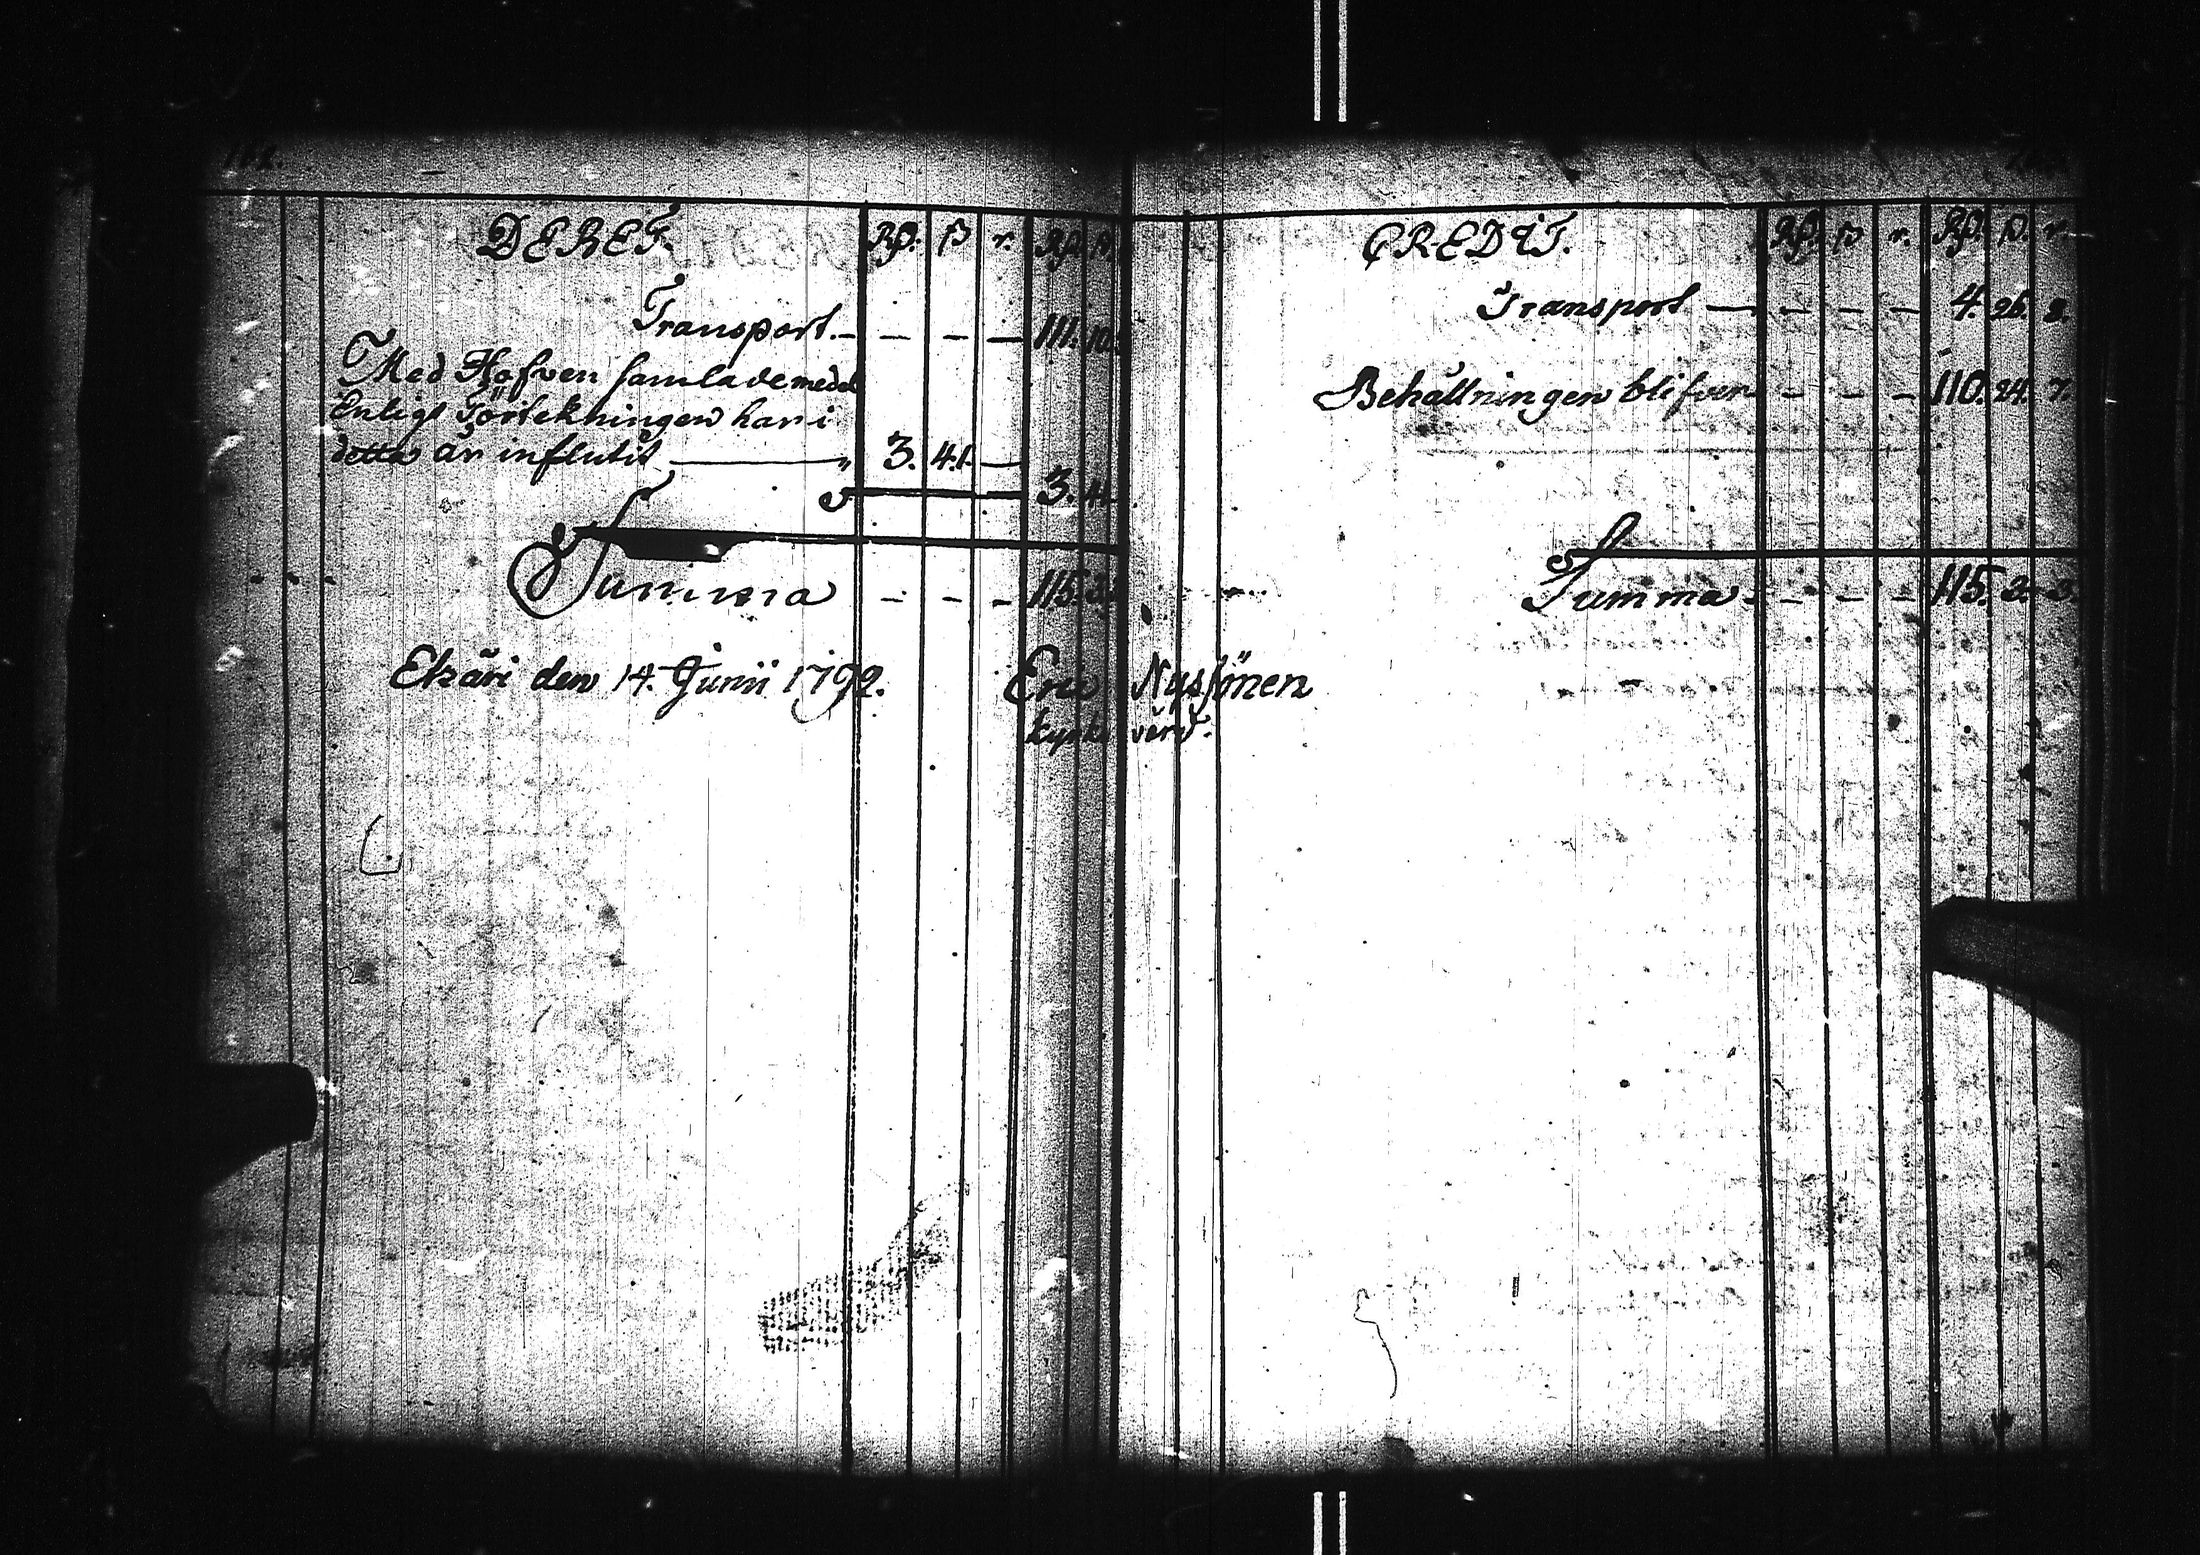 DEBET. Rd. ß r. Rd. ß.
Transport. – – – – 111. 10.
Med Håfven samlade medel
Enligt Förtekningen har i
detta år influtit — " 3. 41. —
3. 41.
Summa – – – 115. 3.
Ekäri den 14. Junii 1792. Eric Nyssönen
kyrko värd.
CREDIT. Rd. ß r. Rd. ß. r.
Transport — – – – 4. 26. 8.
Behållningen blifver – – – 110. 24. 7.
Summa. – – – 115. 3. 3.